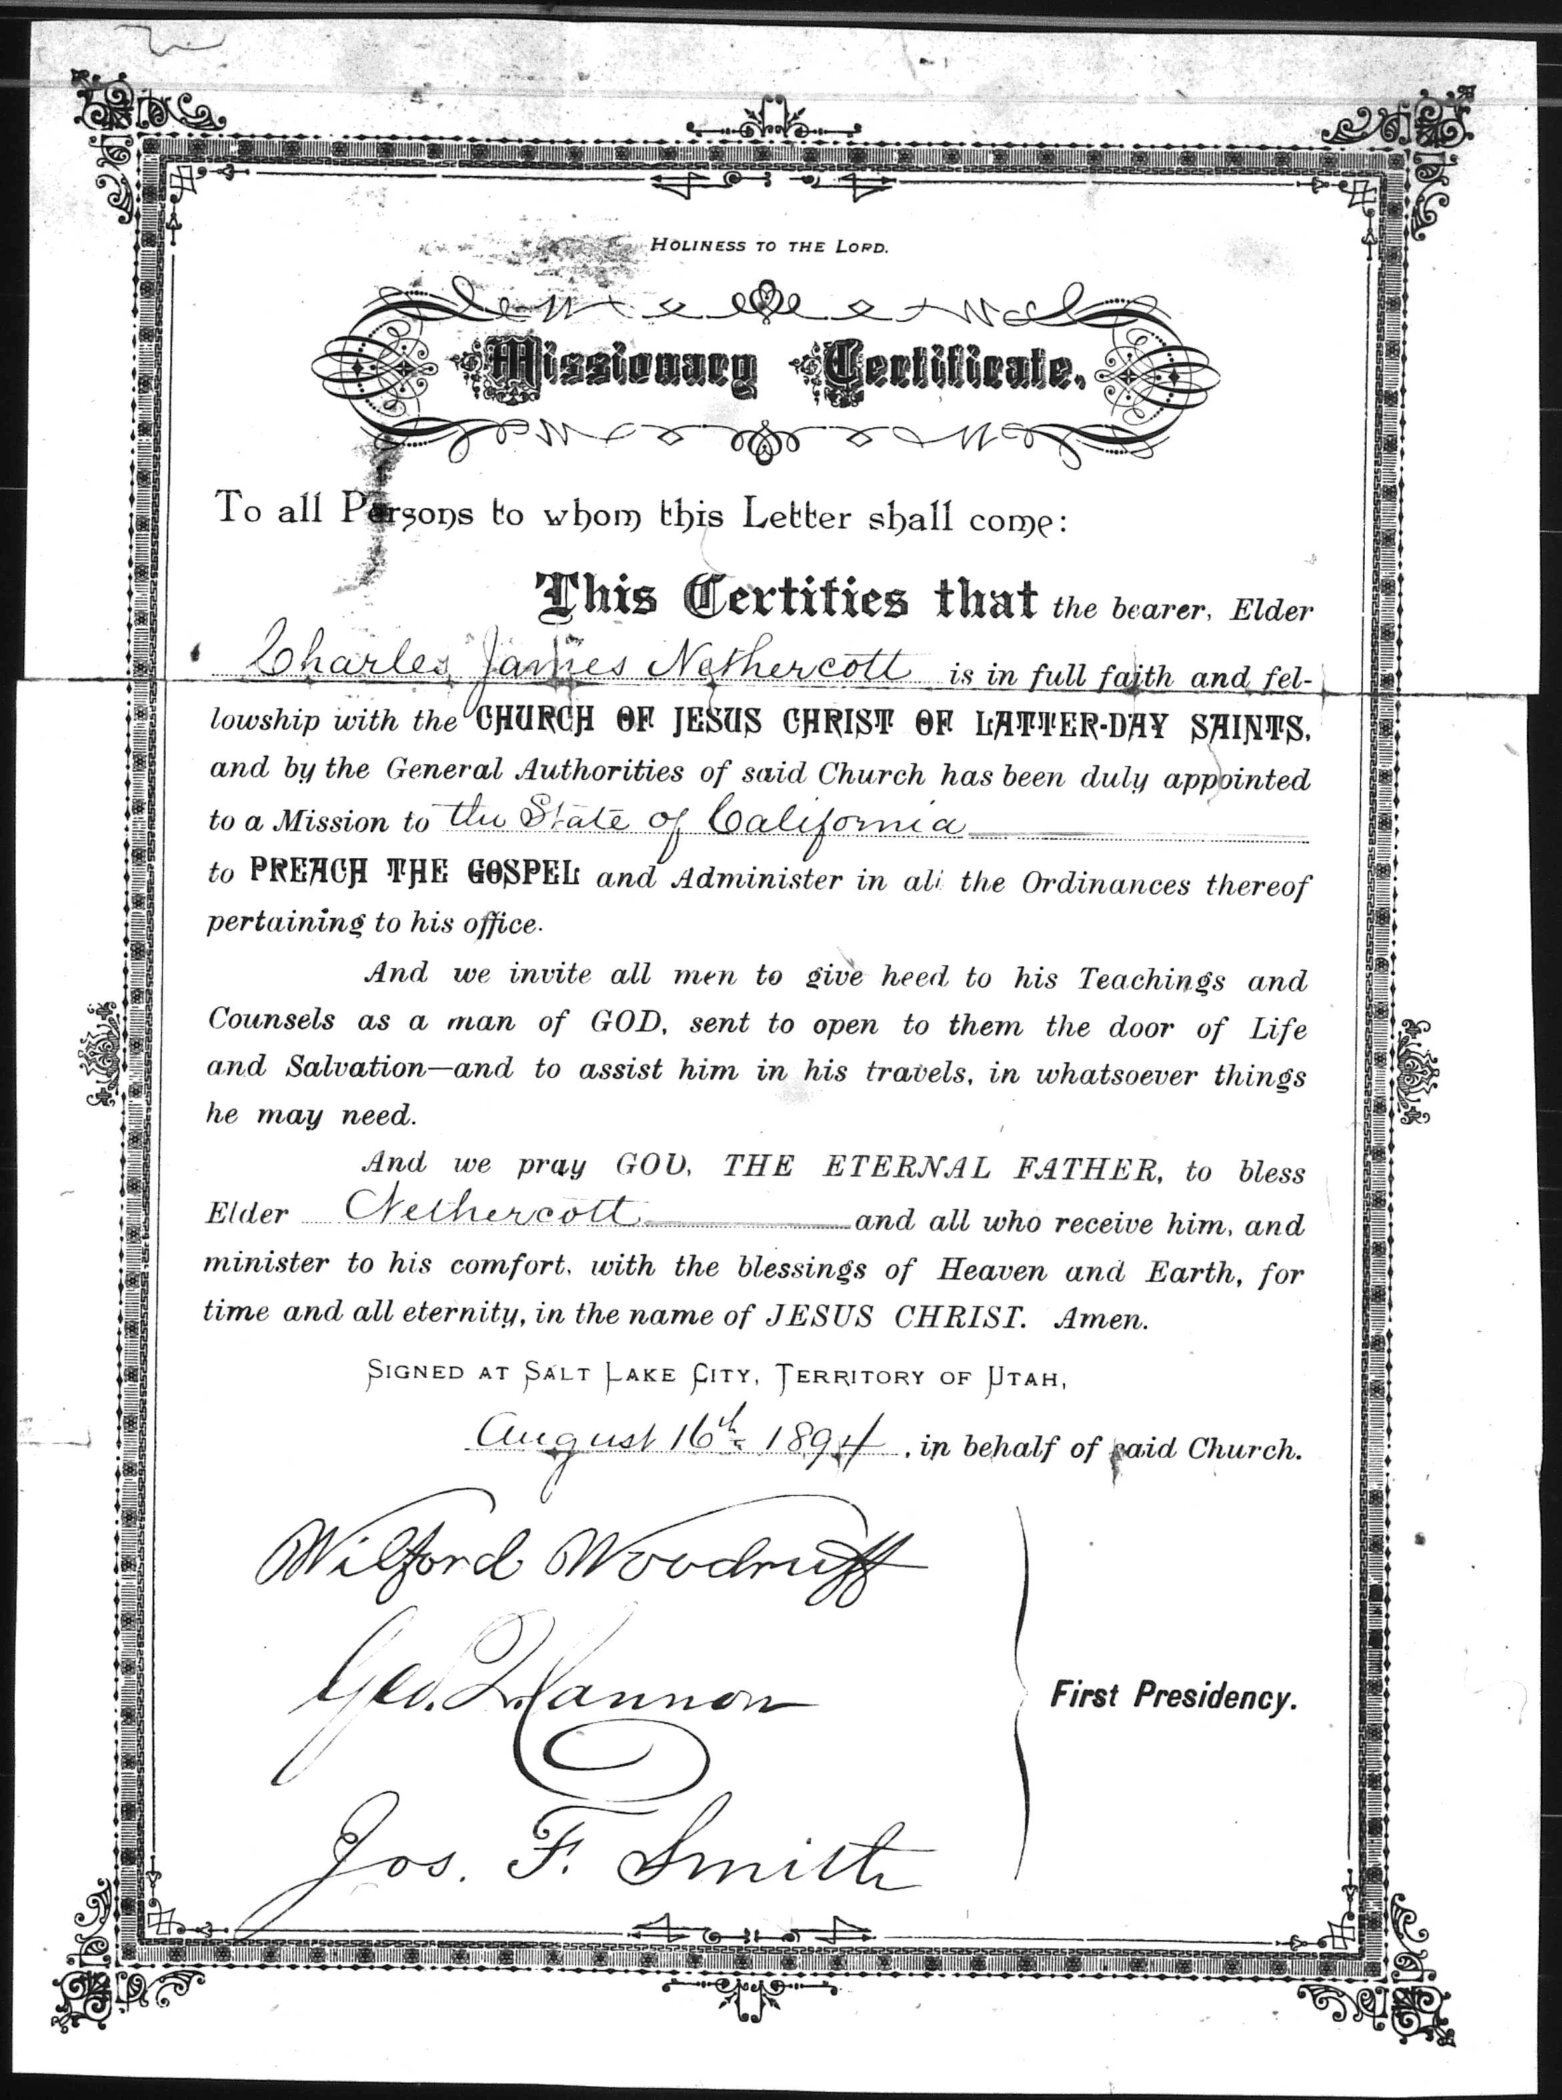 HOLINESS TO THE LORD.
Missionary Certificate.
To all Persons to whom this Letter shall come:
This Certifies that the bearer, Elder
Charles James Nethercott is in full faith and fel-
lowship with the CHURCH OF JESUS CHRIST OF LATTER-DAY SAINTS,
and by the General Authorities of said Church has been duly appointed
to a Mission to the State of California
to PREACH THE GOSPEL and Administer in all the Ordinances thereof
pertaining to his office.
And we invite all men to give heed to his Teachings and
Counsels as a man of GOD, sent to open to them the door of Life
and Salvation—and to assist him in his travels, in whatsoever things
he may need.
And we pray GOD, THE ETERNAL FATHER, to bless
Elder Nethercott and all who receive him, and
minister to his comfort, with the blessings of Heaven and Earth, for
time and all eternity, in the name of JESUS CHRIST. Amen.
SIGNED AT SALT LAKE CITY, TERRITORY OF UTAH,
August 16th 1894, in behalf of said Church.
Wilford Woodruff
Geo. Q. Cannon
First Presidency.
Jos. F. Smith